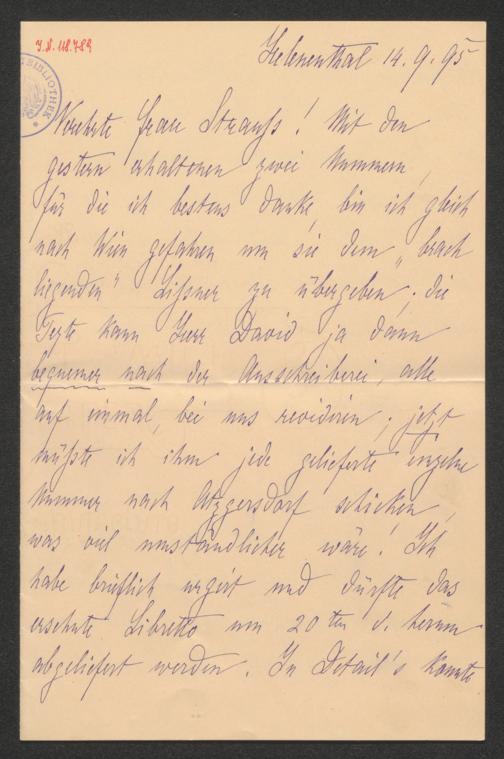 J.N. 118.789
BIBLIOTHEK
Helenenthal 14.9.95
Verehrte Frau Strauss! Mit den
gestern erhaltenen zwei Nummern,
für die ich bestens danke, bin ich gleich
nach Wien gefahren um sie dem „brach
liegenden“ Lissner zu übergeben; die
Texte kann Herr David ja dann
bequemer nach der Ausschreiberei, alle
auf einmal, bei uns revidiren; jetzt
müßte ich ihm jede gelieferte einzelne
Nummer nach Atzgersdorf schicken,
was viel umständlicher wäre! Ich
habe brieflich urgirt und dürfte das
ersehnte Libretto um 20ten d. herum
abgeliefert werden. In Detail's konnte